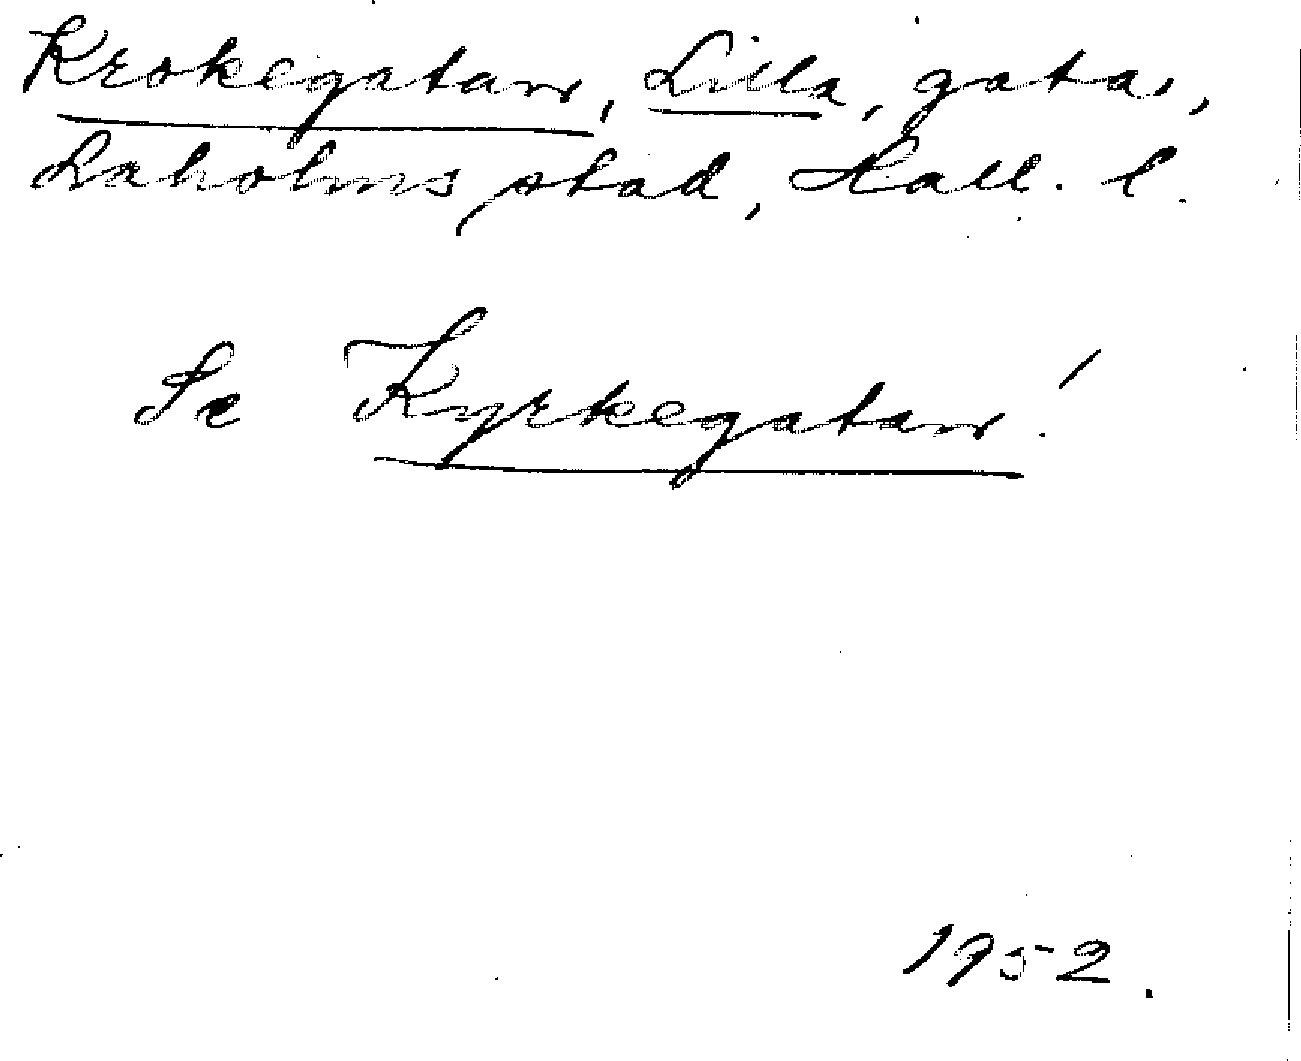 Krokegatan, Lilla, gata,
Laholms stad, Hall. l.
Se Kyrkegatan!
1952.